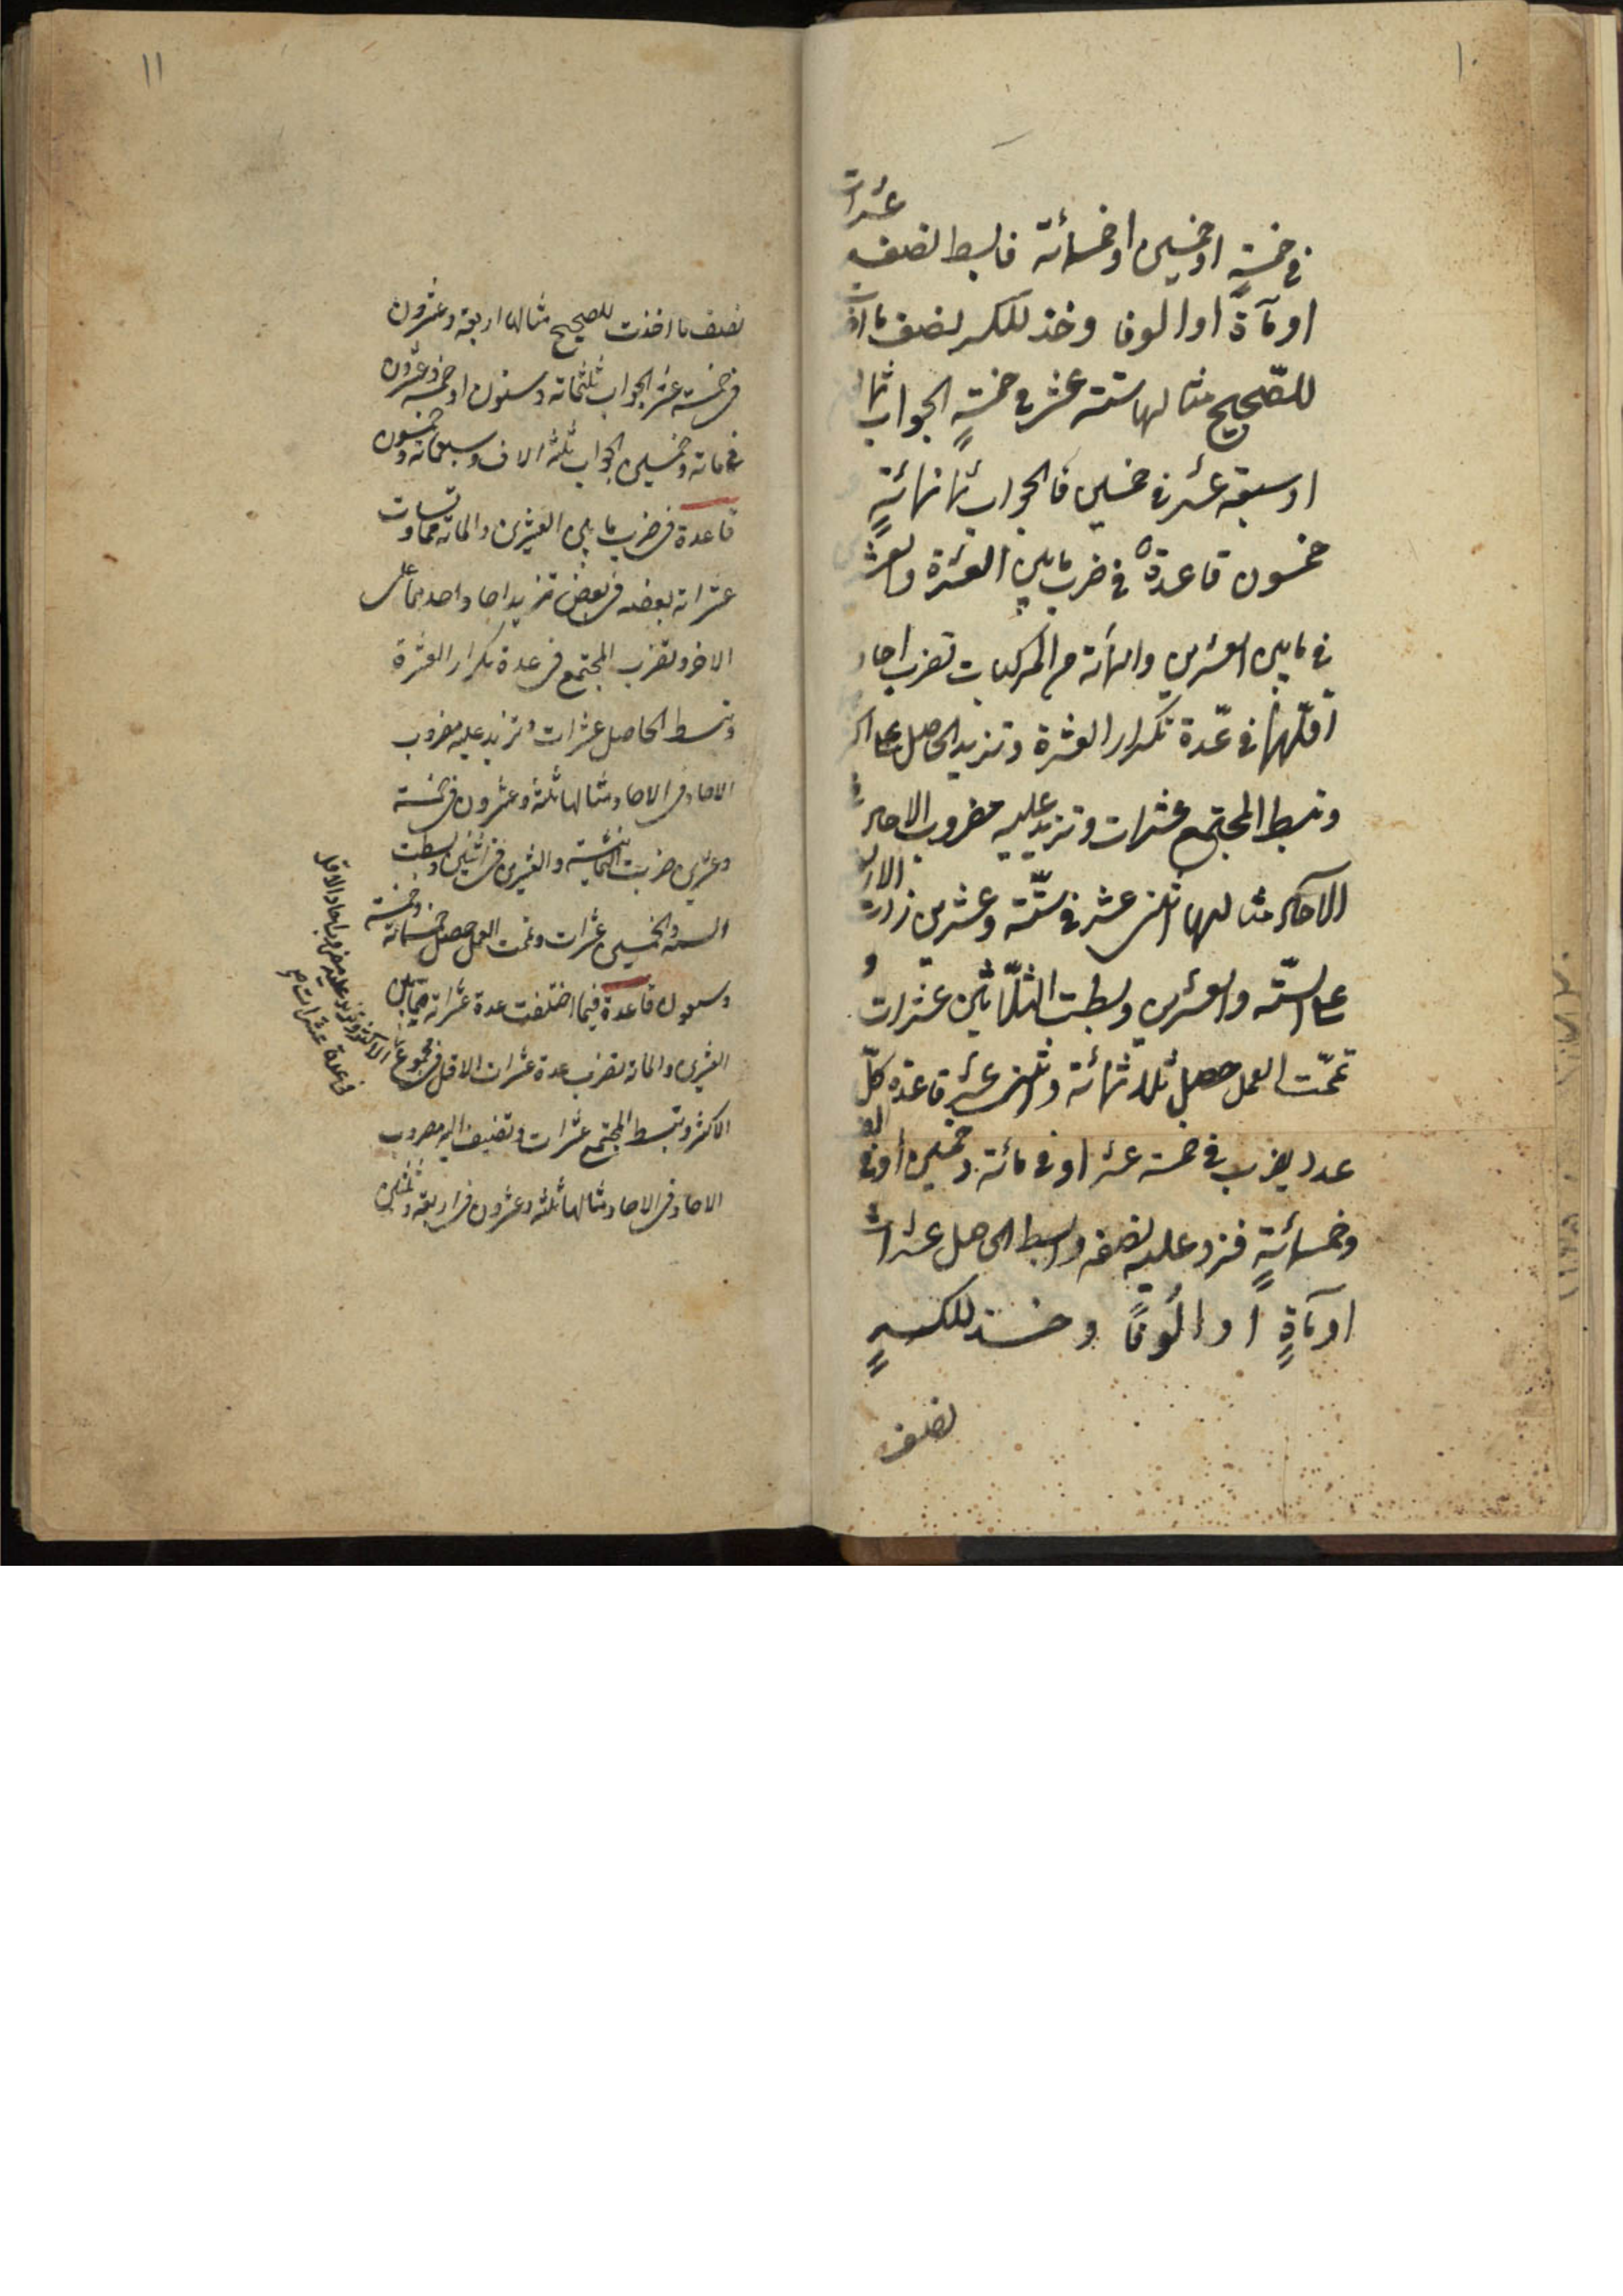 ١٠
في خمسةٍ او خمسين او خمسمائة فابسط نصفه عشرات
او مآةً او الوفا وخذ للكسر نصف ما اخذت
للصّحيح مثالها ستة عشر في خمسةٍ الجواب ثمانون
او سبعة عشر في خمسين فالجواب ثمانمائةٍ
خمسون قاعدة في ضرب ما بين العشرة والعشرين
في ما بين العشرين والمأئة من المركبات تضرب احاد
اقلّهما في عدّة تكرار العشرة وتزيد الحاصل على اكثر
وتبسط المجتمع عشرات وتزيد عليه مضروب الاحاد
الآحاد مثالها اثنى عشر في ستّة وعشرين زدت الاربعة
على الستّة والعشرين وبسطت الثلّاثين عشرات و
تممّت العمل حصل ثلاثمائة واثنى عشر قاعدة كلّ
عدد يضرب في خمسة عشر او في مائة وخمسين أو في الف
وخمسمائةٍ فزد عليه نصفه وابسط الحاصل عشرات
او مآةٍ او اُلُوفاً وخذ للكسرٍ
نصف
١١
نصف ما اخذت للصحيح مثالها اربعة وعشرون
في خمسة عشر الجواب ثلثمائة وستون او خمسة وعشرون
في مائة وخمسين الجواب ثلثة الاف وسبعمائة وخمسون
قاعدة في ضرب ما بين العشرين والمائة مما تساوت
عشراته بعضه في بعض تزيد احاد احدهما على
الاخر وتضرب المجتمع في عدة تكرار العشرة
وتبسط الحاصل عشرات وتزيد عليه مضروب
الاحاد في الاحاد مثالها ثلثة وعشرون في خمسة
وعشرين ضربت الثمانية والعشرين في اثنين وبسطت
الستة والخمسين عشرات وتممت العمل حصل خمسمائة وخمسة
وسبعون قاعدة فيما اختلفت عدة عشراته مما بين
العشرين والمائة تضرب عدة عشرات الاقل في مجموع
الاكثر وتبسط المجتمع عشرات وتضيف اليه مضروب
الاحاد في الاحاد مثالها ثلثة وعشرون في اربعة وثلثين
الاكثر وتزيد عليه مضروب احاد الاقل
في عدة عشرات